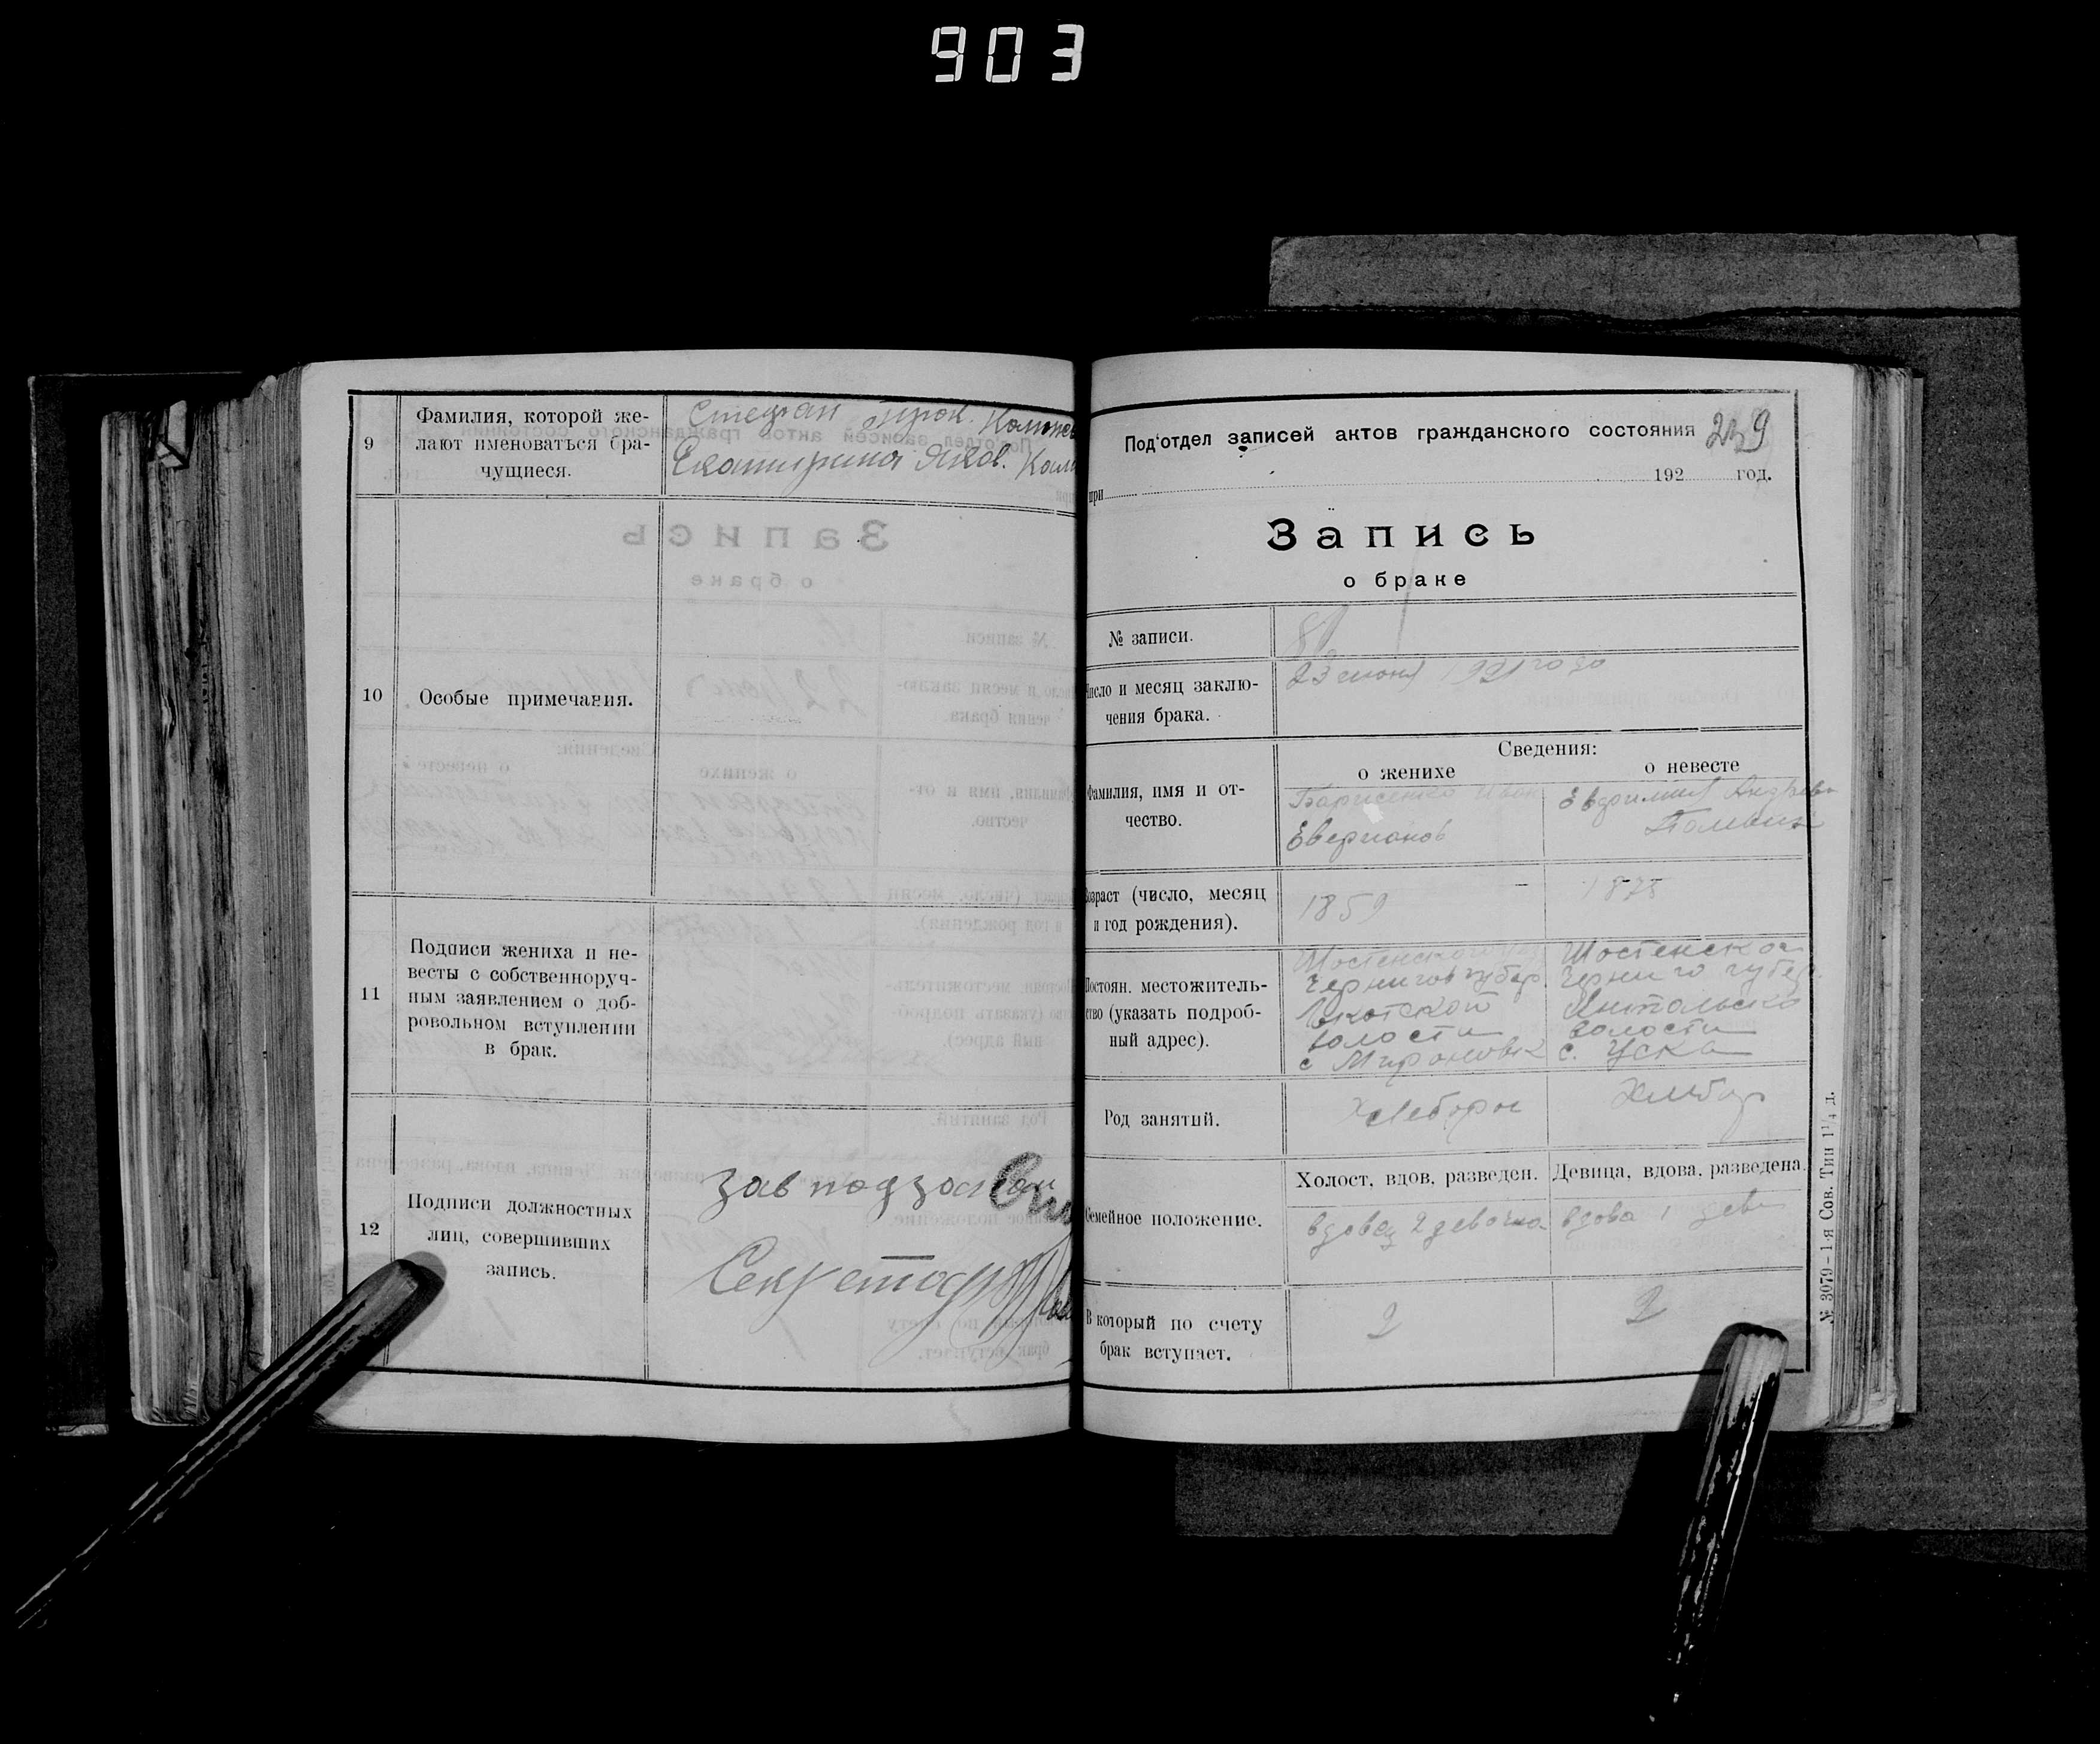 903
9
Фамилия, которой же-
лают именоваться бра-
чущиеся.
Степан Прок.
Екатирина Яков.
10
Особые примечания.
11
Подписи жениха и не-
весты с собственноруч-
ным заявлением о доб-
ровольном вступлении
в брак.
12
Подписи должностных
лиц, совершивших
запись.
Зав
Секретарь
Под'отдел записей актов гражданского состояния
при 192 год.
Запись
о браке
№ записи.
Число и месяц заклю-
чения брака.
23 июня 1921 года
Сведения:
о женихе
о невесте
Фамилия, имя и от-
чество.
Барисенко Иван
Еверианов
Возраст (число, месяц
и год рождения).
1859
1878
Постоян. местожитель-
ство (указать подроб-
ный адрес).
Чернигов губер.
волости
с Мироновк
Шостенской
Черниго губер.
волости
с. Уска
Род занятий.
Хлебороб
Семейное положение.
Холост, вдов, разведен.
Девица, вдова, разведена.
вдовец 2 девочка
вдова 1
В который по счету
брак вступает.
2
2
№ 3079 - 1-я Сов. Тип 1¹/₄ д.